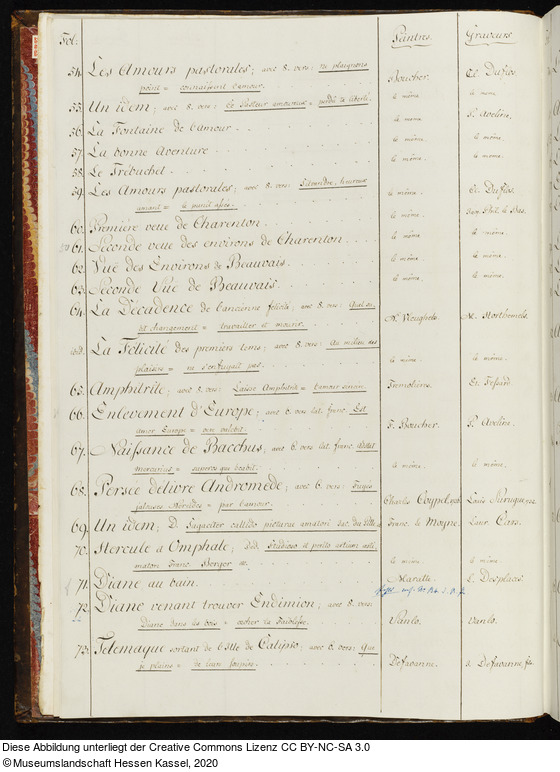 Fol: Peintres. Graveurs
54. Les Amours pastorales; avec 8. vers: ne plaignons
point = connaissent l'amour. Boucher. Cl. Duflos.
55. Un idem; avec 8. vers: Ce Pasteur amoureux = perdu sa liberté. le même. le même.
56. La Fontaine de l'amour le même. P. Aveline.
57. La bonne Aventure le même. le même.
58. Le Trébuchet le même. le même.
59. Les Amours pastorales; avec 8. vers: heureux
amant = le même. Cl. Duflos.
60. Premiere veue de Charenton le même. Jean Phil. le Bas.
61. Seconde veue des environs de Charenton le même. le même.
62. Vue des Environs de Beauvais. le même. le même.
63. Seconde Vue de Beauvais. le même. le même.
64. La Décadence de l'ancienne felicité; avec 8. vers: Quel
changement = travailler et mourir. N. Vleughels.
La Félicité des premiers tems; avec 8. vers: Au milieu des
plaisirs = ne s'enfuyait pas. le même. le même.
65. Amphitrite; avec 6. vers: Laisse Amphitrite =
66. Enlevement d'Europe; avec 6. vers lat. franc.
amor Europe = F. Boucher. P. Aveline.
67. Naissance de Bacchus, avec 6. vers lat. franc.
mercurius = le même. le même.
68. Persée délivre Andromède; avec 6. vers:
jalouses Néréides = par l'amour. Charles Coypel Louis Surugue
69. Un idem; D. Franc. le Moyne. Laur. Cars.
70. Hercule & Omphale; Ded. Studioso et perito artium
Franc. Berger le même le même
71. Diane au bain. Maratte L. Desplaces
72. Diane venant trouver Endimion, avec 8. vers:
Diane dans les bois = cacher la Vanlo. Vanlo.
73. Telemaque sortant de l'Isle de Calipso; avec vers: Que
je plains = Defavanne.
Diese Abbildung unterliegt der Creative Commons Lizenz CC BY-NC-SA 3.0
© Museumslandschaft Hessen Kassel, 2020